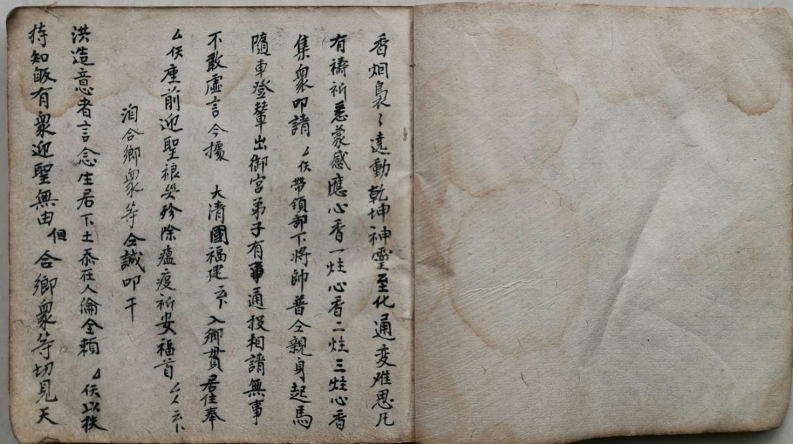 香烟裊〻遠動乾坤神靈至化通变难思凡
有禱祈悉蒙感應心香一炷心香二炷三炷心香
集衆叩請 厶伕帶領部下將帥普仝親身起馬
隨車登輦出御宮弟子有事通投相請無事
不敢虛言今據 大清國福建 入鄉貫居住奉
厶伕座前迎聖禳災殄除瘟疫祈安福首 厶厶云下
洎合鄉衆等仝誠叩干
洪造意者言念生居下土忝在人倫全賴 厶伕以扶
持知皈有衆迎聖無由 但合鄉衆等切見天